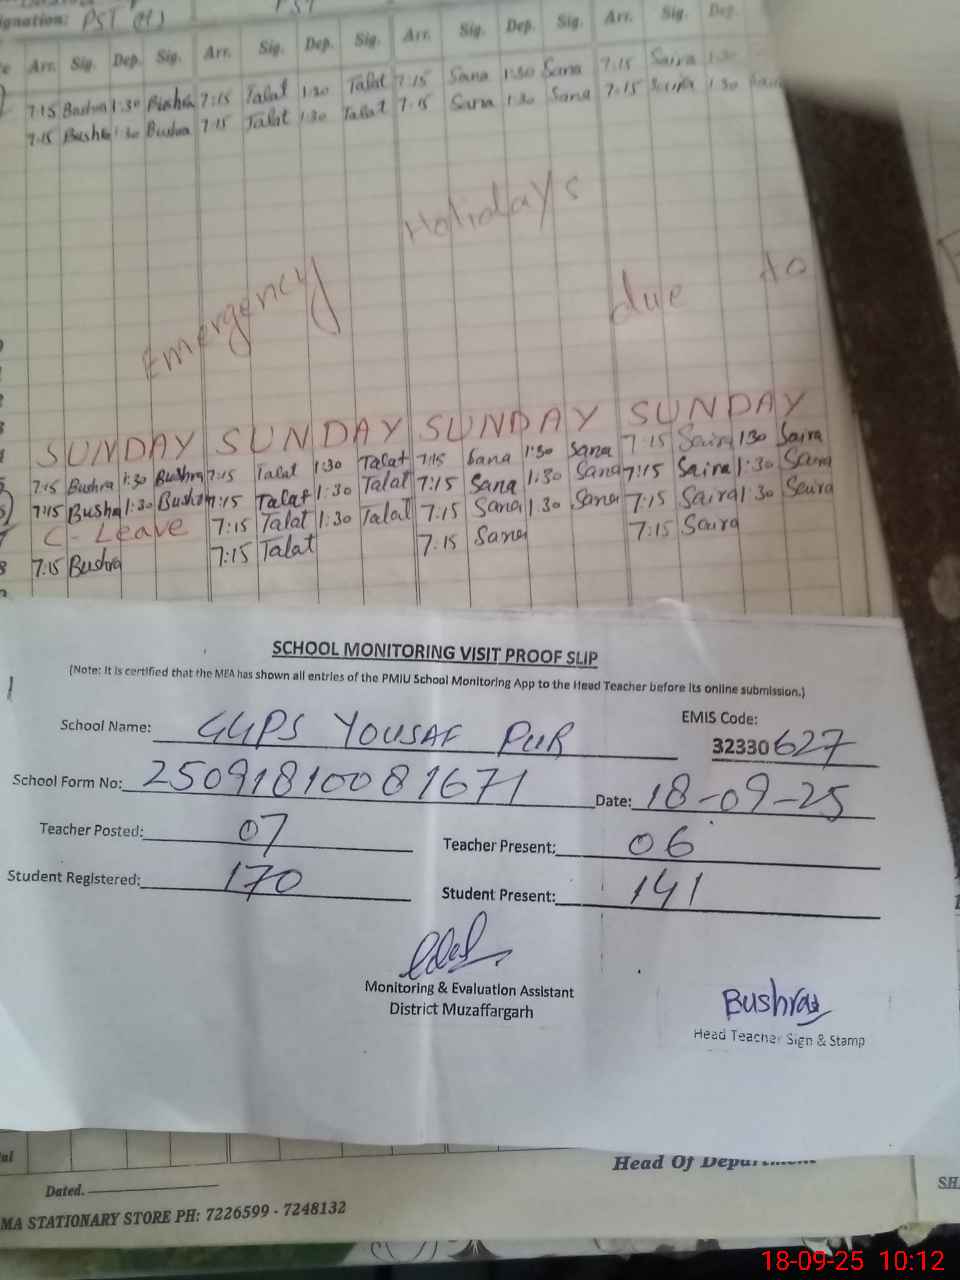 ignation: PST (H) PST
Arr. Sig. Dep. Sig. Arr. Sig. Dep. Sig. Arr. Sig. Dep. Sig. Arr. Sig. Dep.
7:15 Bushra 1:30 Bushra 7:15 Talat 1:30 Talat 7:15 Sana 1:30 Sana 7:15 Saira 1:30
7:15 Bushra 1:30 Bushra 7:15 Talat 1:30 Talat 7:15 Sana 1:30 Sana 7:15 Saira 1:30
Emergency Holidays due to
SUNDAY SUNDAY SUNDAY SUNDAY
7:15 Bushra 1:30 Bushra 7:15 Talat 1:30 Talat 7:15 Sana 1:30 Sana 7:15 Saira 1:30 Saira
7:15 Bushra 1:30 Bushra 7:15 Talat 1:30 Talat 7:15 Sana 1:30 Sana 7:15 Saira 1:30 Saira
C-Leave 7:15 Talat 1:30 Talat 7:15 Sana 1:30 Sana 7:15 Saira 1:30 Saira
7:15 Bushra 7:15 Talat 7:15 Sana 7:15 Saira
SCHOOL MONITORING VISIT PROOF SLIP
(Note: It is certified that the MEA has shown all entries of the PMIU School Monitoring App to the Head Teacher before its online submission.)
School Name: GGPS YOUSAF PUR EMIS Code: 32330627
School Form No: 25091810081671 Date: 18-09-25
Teacher Posted: 07 Teacher Present: 06
Student Registered: 170 Student Present: 141
Monitoring & Evaluation Assistant
District Muzaffargarh
Bushra
Head Teacher Sign & Stamp
Head Of Department
Dated.
MA STATIONARY STORE PH: 7226599 - 7248132
18-09-25 10:12